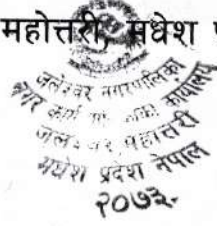 महोत्तरी, मधेश
जलेश्वर नगरपालिका
नगर कार्य कार्यालय
जलेश्वर, महोत्तरी
मधेश प्रदेश नेपाल
२०७३